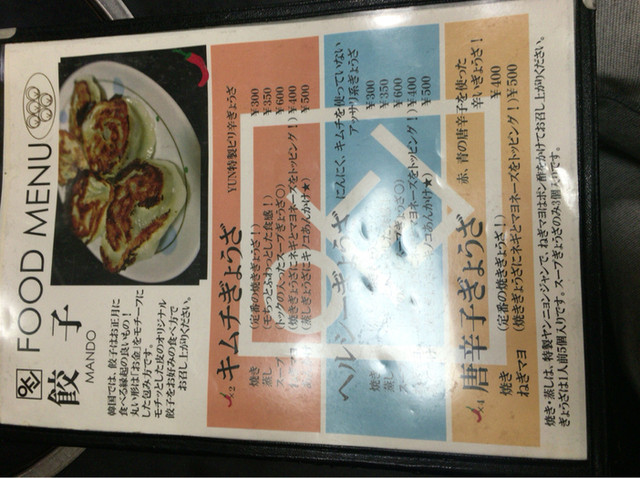 FOOD MENU
餃子
MANDO
韓国では、餃子はお正月に
食べる縁起の良いもの!
丸い形は「お金」をモチーフに
した包み方です。
モチッとした皮のオリジナル
餃子をお好みの食べ方で
お召し上がりください。
キムチぎょうざ YUN特製ピリ辛ぎょうざ
焼き (定番の焼きぎょうざ!) ¥300
蒸し (もちっとふわっとした食感!) ¥350
スープ ¥600
ねぎマヨ (焼きぎょうざにネギとマヨネーズをトッピング!) ¥400
(蒸しぎょうざにキノコあんかけ★) ¥500
ヘルシーぎょうざ にんにく、キムチを使っていない
アッサリ系ぎょうざ
焼き ¥300
蒸し ¥350
¥600
¥400
¥500
唐辛子ぎょうざ 赤、青の唐辛子を使った
辛いぎょうざ!
焼き (定番の焼きぎょうざ!) ¥400
ねぎマヨ (焼きぎょうざにネギとマヨネーズをトッピング!) ¥500
焼き・蒸しは、特製ヤンニョンジャンで、ねぎマヨはポン酢をかけてお召し上がりください。
ぎょうざは1人前5個入りです。スープぎょうざのみ3個入りです。